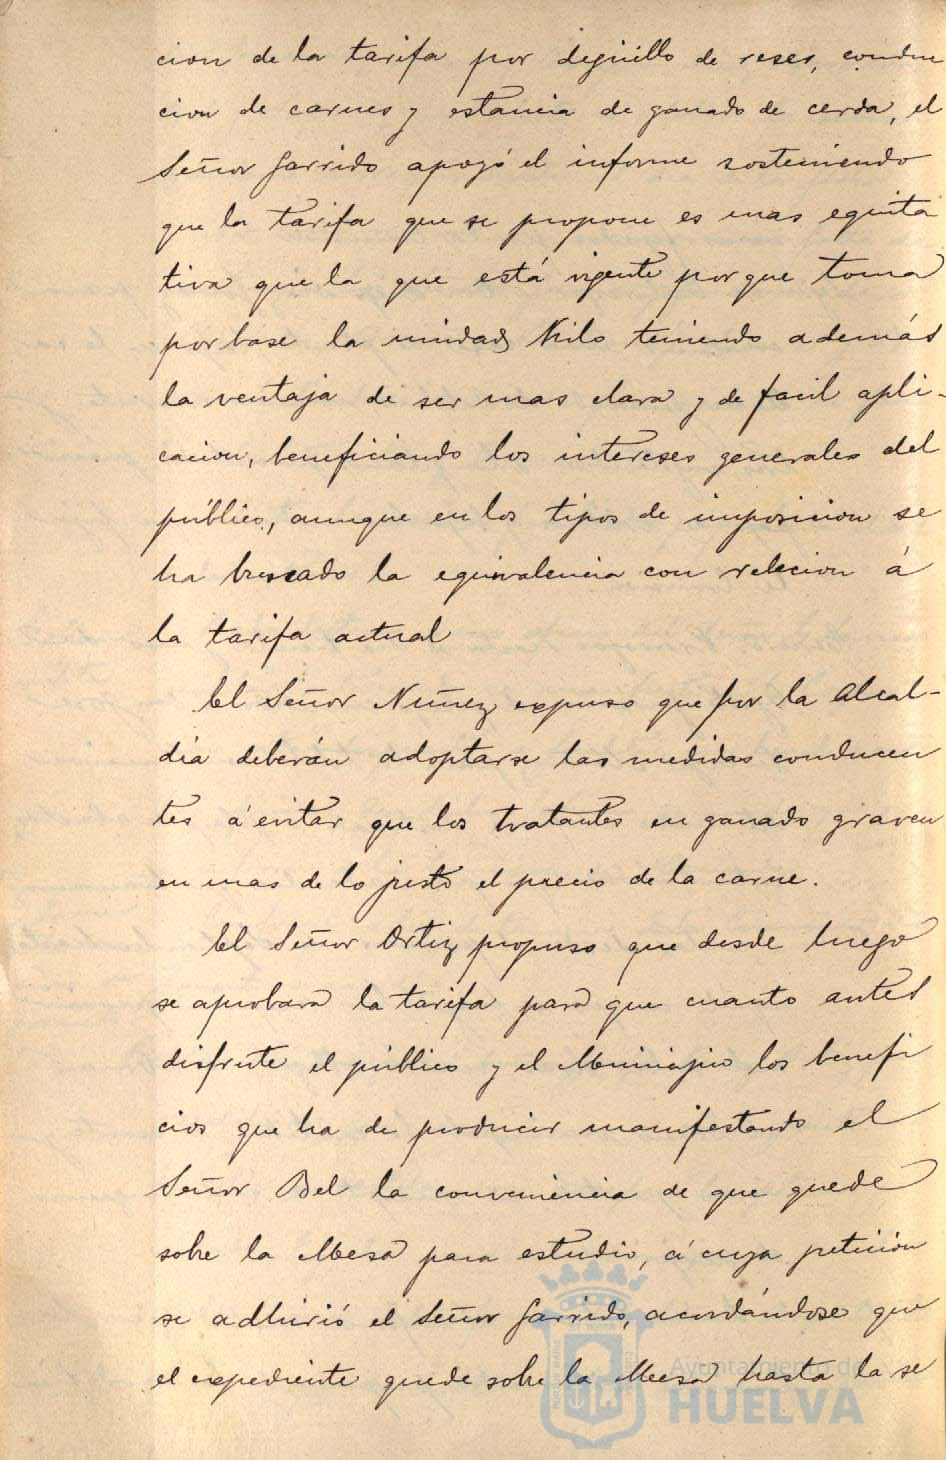 cion de la tarifa por degüello de reses, conduc
cion de carnes y estancia de ganado de cerda, el
Señor Garrido apoyó el informe sosteniendo
que la tarifa que se propone es mas equita
tiva que la que está vigente porque toma
por base la unidad Kilo teniendo además
la ventaja de ser mas clara y de facil apli-
cacion, beneficiando los intereses generales del
público, aunque en los tipos de imposicion se
ha buscado la equivalencia con relecion á
la tarifa actual
El Señor Nuñez expuso que por la Alcal-
dia deberán adoptarse las medidas conducen
tes á evitar que los tratantes en ganado graven
en mas de lo justo el precio de la carne.
El Señor Ortiz propuso que desde luego
se aprobara la tarifa para que cuanto antes
disfrute el público y el Municipio los benefi
cios que ha de producir manifestando el
Señor Bel la conveniencia de que quede
sobre la Mesa para estudio, á cuya petición
se adhirió el Señor Garrido, acordándose que
el expediente quede sobre la Mesa hasta la se
Ayuntamiento de
HUELVA